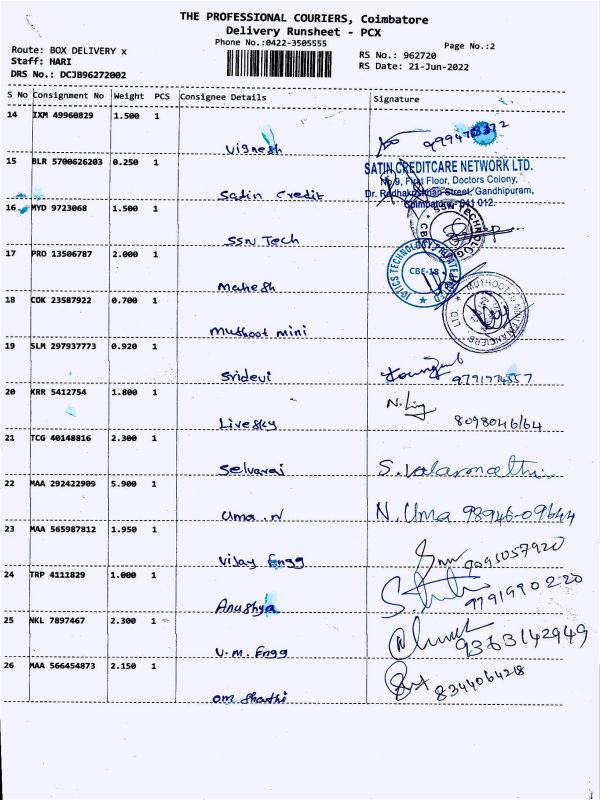 THE PROFESSIONAL COURIERS, Coimbatore
Delivery Runsheet - PCX
Phone No.:0422-3505555
Page No.:2
Route: BOX DELIVERY x
Staff: HARI
DRS No.: DCJB96272002
RS No.: 962720
RS Date: 21-Jun-2022
S No Consignment No Weight PCS Consignee Details Signature
14 IXM 49960829 1.500 1
Vignesh
15 BLR 5700626203 0.250 1
Satin Credit
SATIN CREDITCARE NETWORK LTD.
No.9, First Floor, Doctors Colony,
Dr. Radhakrishnan Street, Gandhipuram,
Coimbatore 641 012.
16 MYD 9723068 1.500 1
SSN Tech
17 PRO 13506787 2.000 1
Mahesh
CBE-18
18 COK 23587922 0.700 1
Muthoot mini
19 SLM 297937773 0.920 1
Sridevi
9791774557
20 KRR 5412754 1.800 1
Livesky
8098046164
21 TCG 40148816 2.300 1
Selvaraj
S. Valarmathi
22 MAA 292422909 5.900 1
Uma. N
N. Uma 98946-09644
23 MAA 565987812 1.950 1
Vijay Engg
9095057920
24 TRP 4111829 1.000 1
Anushya
9791990220
25 NKL 7897467 2.300 1
V.M. Engg
9363142949
26 MAA 566454873 2.150 1
Om Shakthi
8344064218